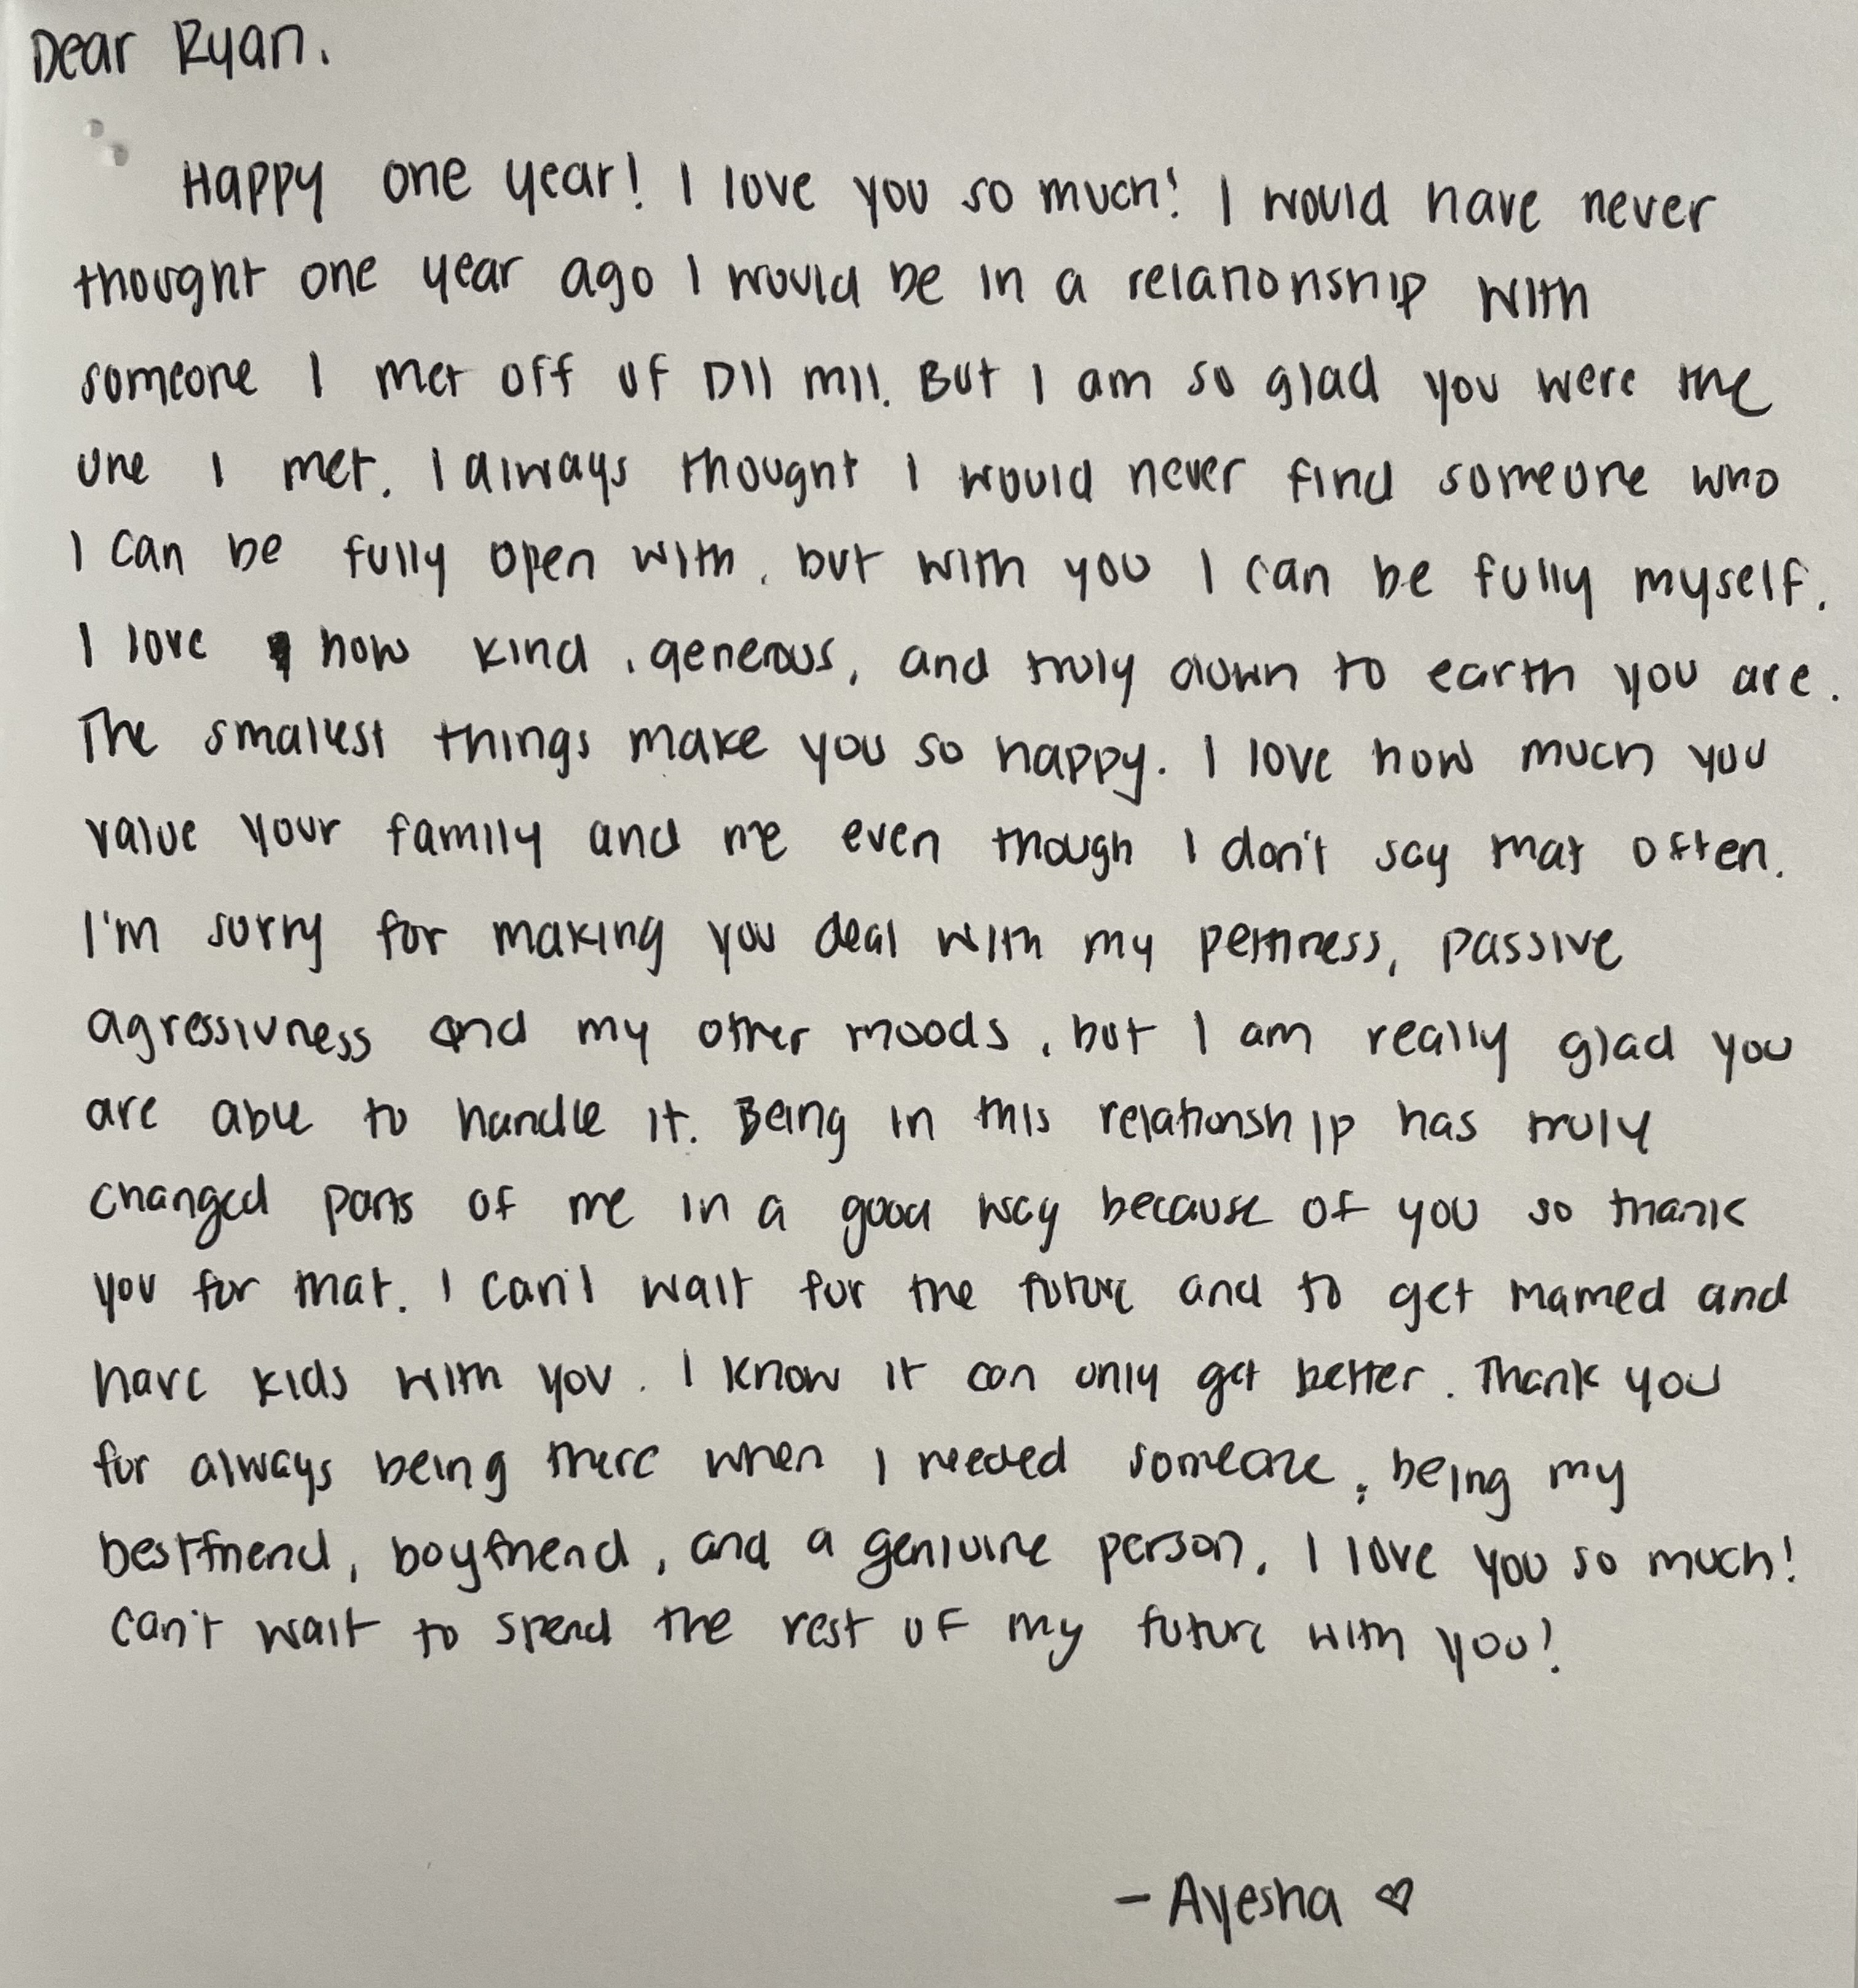 Dear Ryan,
Happy one year! I love you so much! I would have never
thought one year ago I would be in a relationship with
someone I met off of Dil mil. But I am so glad you were the
one I met. I always thought I would never find someone who
I can be fully open with, but with you I can be fully myself.
I love how kind, generous, and truly down to earth you are.
The smallest things make you so happy. I love how much you
value your family and me even though I don't say that often.
I'm sorry for making you deal with my pettiness, passive
agressivness and my other moods, but I am really glad you
are able to handle it. Being in this relationship has truly
changed parts of me in a good way because of you so thank
you for that. I can't wait for the future and to get married and
have kids with you. I know it can only get better. Thank you
for always being there when I needed someone, being my
bestfriend, boyfriend, and a geniuine person. I love you so much!
Can't wait to spend the rest of my future with you!
- Ayesha ♡